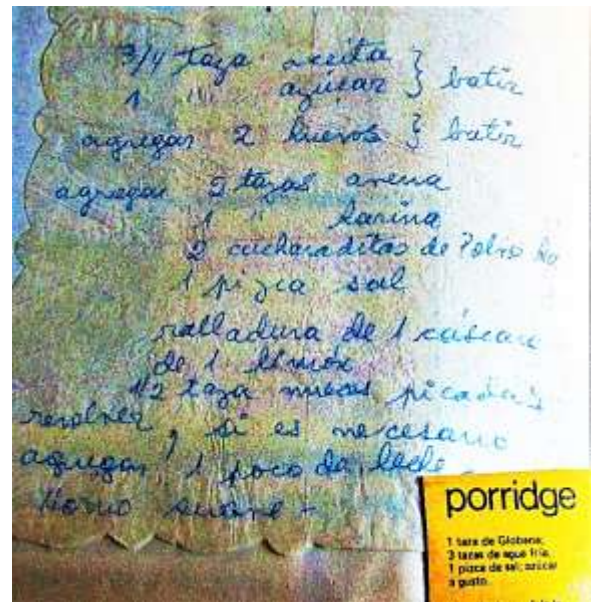 3/4 taza aceite } batir
1 " azúcar
agregar 2 huevos } batir
agregar 2 tazas avena
1 " harina
2 cucharaditas de Polvo ho
1 pizca sal
ralladura de 1 cáscara
de 1 limón
1/2 taza nueces picadas
revolver, si es necesario
agregar 1 poco de leche
Horno suave -
porridge
1 taza de Globena;
3 tazas de agua fría,
1 pizca de sal; azúcar
a gusto.